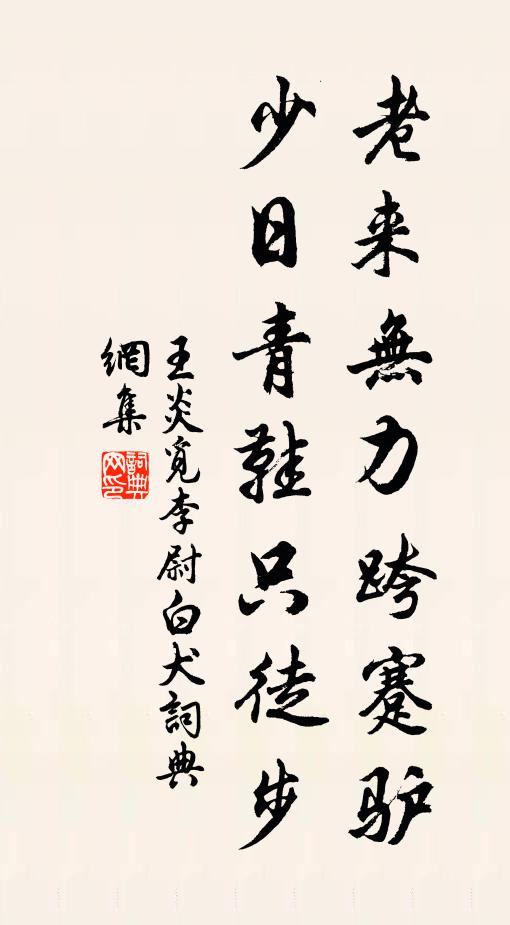 老来無力跨蹇驴
少日青鞋只徒步
王炎覓李尉白犬詞典
網集
詞典
网印